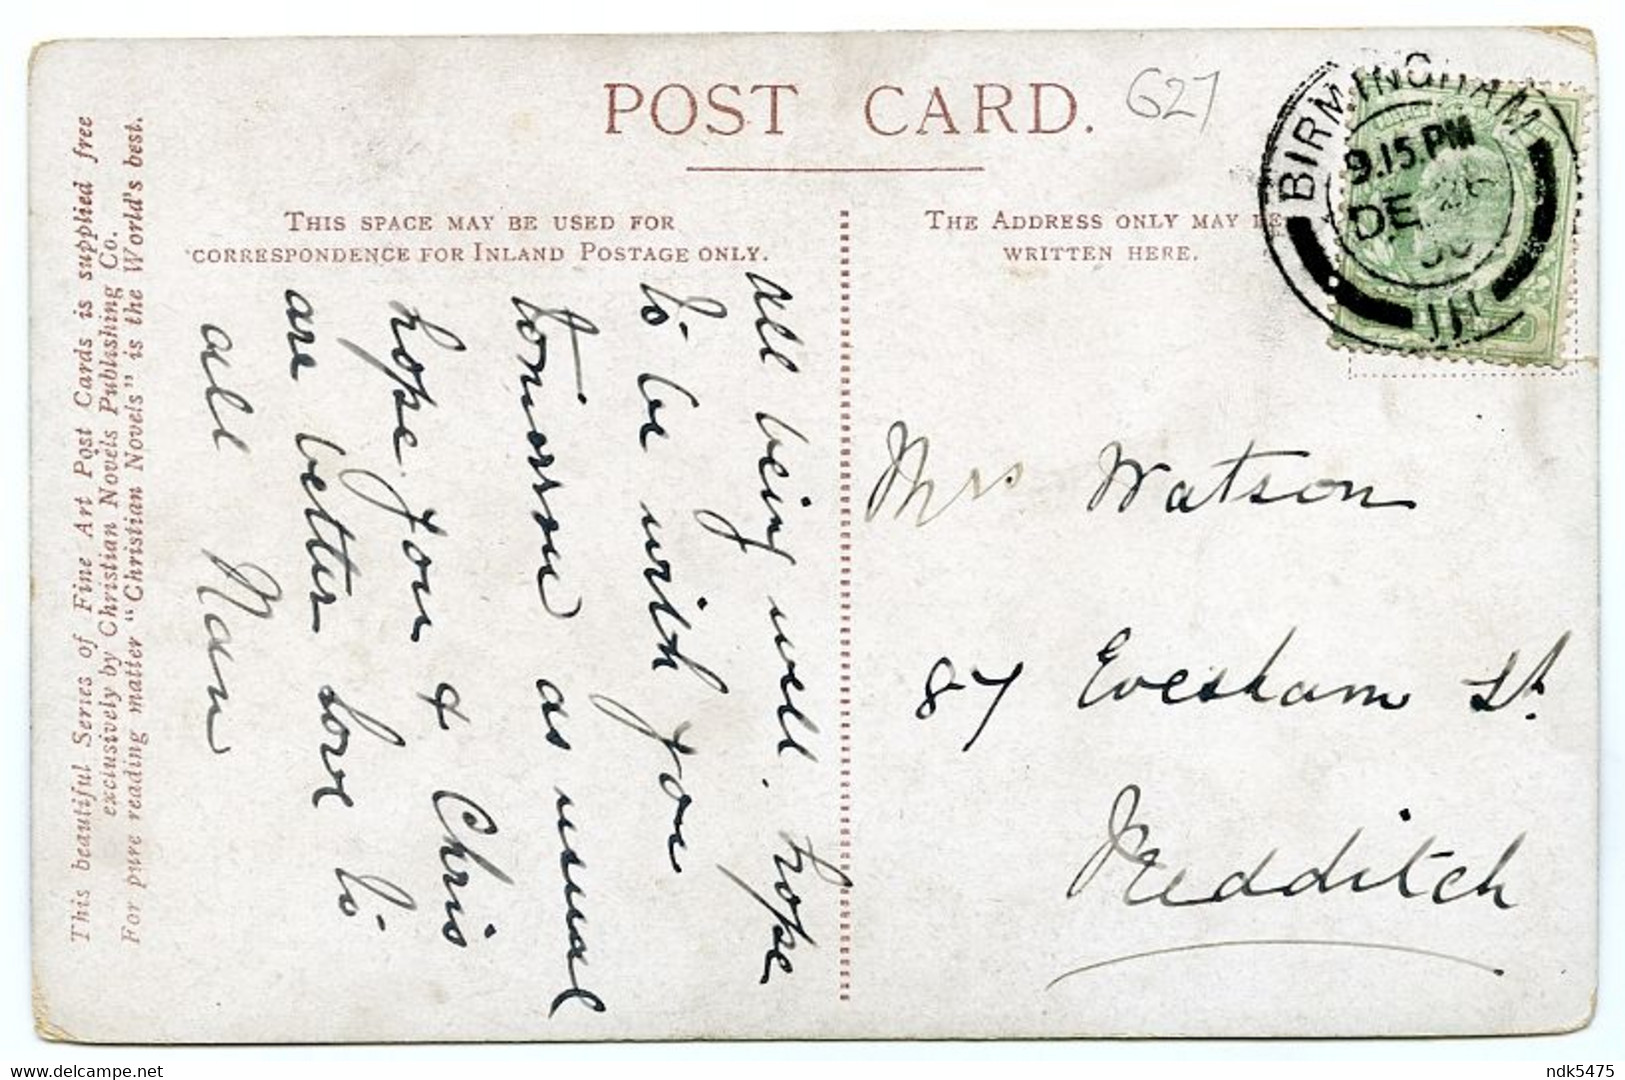 POST CARD.
627
BIRMINGHAM
9.15.PM
DE
THIS SPACE MAY BE USED FOR
CORRESPONDENCE FOR INLAND POSTAGE ONLY.
THE ADDRESS ONLY MAY BE
WRITTEN HERE.
This beautiful Series of Fine Art Post Cards is supplied free
exclusively by Christian Novels Publishing Co.
For pure reading matter "Christian Novels" is the World's best.
all being well. hope
to be with you
tomorrow as usual
hope you & Chris
are better love to
all Nan
Mrs Watson
87 Evesham St.
Redditch
delcampe.net
ndk5475